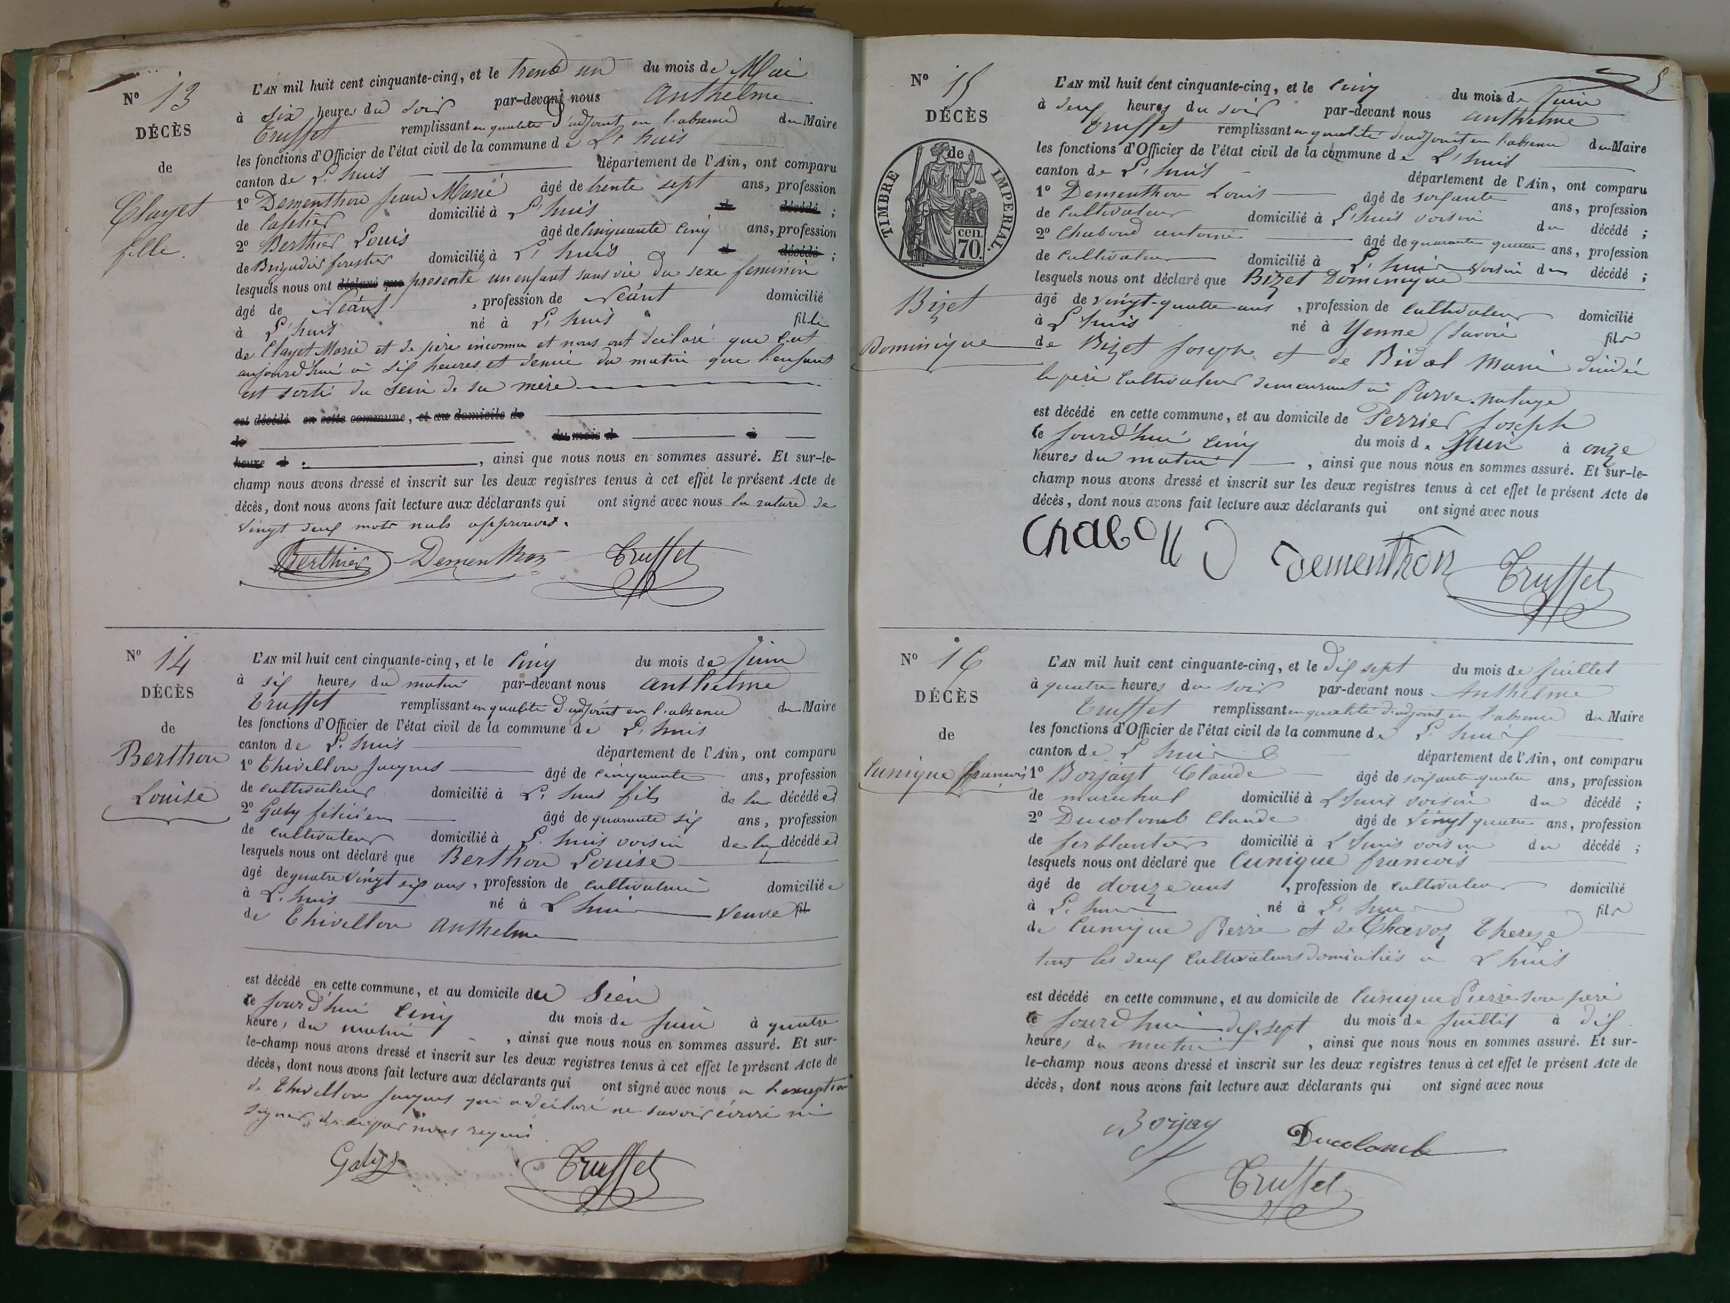 N° 13
DÉCÈS
de
Clayet
fille.
L'AN mil huit cent cinquante-cinq, et le trente un du mois de Mai
à six heures du soir par-devant nous Anthelme
Truffet remplissant en qualité d'adjoint en l'absence du Maire
les fonctions d'Officier de l'état civil de la commune de L'huis
canton de L'huis département de l'Ain, ont comparu
1° Dementhon Jean Marie âgé de trente sept ans, profession
de domicilié à L'huis d décédé ;
2° Berthier Louis âgé de cinquante cinq ans, profession
de Brigadier forestier domicilié à L'huis d décédé ;
lesquels nous ont déclaré que présenté un enfant sans vie du sexe féminin
âgé de Néant, profession de Néant domicilié
à L'huis né à L'huis fille
de Clayet Marie et de père inconnu et nous ont déclaré que cest
aujourd'hui à six heures et demie du matin que l'enfant
est sorti du sein de sa mère
est décédé en cette commune, et au domicile de
le du mois d à
heure d , ainsi que nous nous en sommes assuré. Et sur-le-
champ nous avons dressé et inscrit sur les deux registres tenus à cet effet le présent Acte de
décès, dont nous avons fait lecture aux déclarants qui ont signé avec nous la rature de
vingt deux mots nuls approuvés.
Berthier Dementhon Truffet
N° 14
DÉCÈS
de
Berthon
Louise
L'AN mil huit cent cinquante-cinq, et le cinq du mois de Juin
à six heures du matin par-devant nous Anthelme
Truffet remplissant en qualité d'adjoint en l'absence du Maire
les fonctions d'Officier de l'état civil de la commune de L'huis
canton de L'huis département de l'Ain, ont comparu
1° Thivellon Jacques âgé de cinquante ans, profession
de cultivateur domicilié à L'huis fils de la décédée
2° Galy félicien âgé de quarante six ans, profession
de cultivateur domicilié à L'huis voisin de la décédée
lesquels nous ont déclaré que Berthon Louise
âgé de quatre vingt six ans, profession de cultivatrice domiciliée
à L'huis né à L'huis veuve fil
de Thivellon Anthelme
est décédé en cette commune, et au domicile du sien
le jourd'hui cinq du mois de Juin à quatre
heures du matin, ainsi que nous nous en sommes assuré. Et sur-
le-champ nous avons dressé et inscrit sur les deux registres tenus à cet effet le présent Acte de
décès, dont nous avons fait lecture aux déclarants qui ont signé avec nous à l'exception
de Thivellon Jacques qui a déclaré ne savoir écrire ni
signer de ce par nous requis
Galy Truffet
5
N° 15
DÉCÈS
de
TIMBRE IMPERIAL.
70 cen
Bizet
Dominique
L'AN mil huit cent cinquante-cinq, et le cinq du mois de Juin
à deux heures du soir par-devant nous Anthelme
Truffet remplissant en qualité d'adjoint en l'absence du Maire
les fonctions d'Officier de l'état civil de la commune de L'huis
canton de L'huis département de l'Ain, ont comparu
1° Dementhon Louis âgé de soixante ans, profession
de cultivateur domicilié à L'huis voisin du décédé ;
2° Chaboud antoine âgé de quarante quatre ans, profession
de cultivateur domicilié à L'huis voisin du décédé ;
lesquels nous ont déclaré que Bizet Dominique
âgé de vingt-quatre ans, profession de cultivateur domicilié
à L'huis né à Yenne (Savoie fils
de Bizet Joseph et de Bidal Marie décédée
le père cultivateur demeurant à
est décédé en cette commune, et au domicile de Perrier Joseph
le jourd'hui cinq du mois de Juin à onze
heures du matin, ainsi que nous nous en sommes assuré. Et sur-le-
champ nous avons dressé et inscrit sur les deux registres tenus à cet effet le présent Acte de
décès, dont nous avons fait lecture aux déclarants qui ont signé avec nous
Chaboud Dementhon Truffet
N° 16
DÉCÈS
de
Cunique françois
L'AN mil huit cent cinquante-cinq, et le dix sept du mois de Juillet
à quatre heures du soir par-devant nous Anthelme
Truffet remplissant en qualité d'adjoint en l'absence du Maire
les fonctions d'Officier de l'état civil de la commune de L'huis
canton de L'huis département de l'Ain, ont comparu
1° Borjayt Claude âgé de soixante quatre ans, profession
de maréchal domicilié à L'huis voisin du décédé ;
2° Ducolomb Claude âgé de vingt quatre ans, profession
de ferblantier domicilié à L'huis voisin du décédé ;
lesquels nous ont déclaré que Cunique francois
âgé de douze ans, profession de cultivateur domicilié
à L'huis né à L'huis fils
de Cunique Pierre et de Chavoz Therese
tous les deux cultivateurs domiciliés à L'huis
est décédé en cette commune, et au domicile de Cunique Pierre son père
le jourd'hui dix sept du mois de Juillet à dix
heures du matin, ainsi que nous nous en sommes assuré. Et sur-
le-champ nous avons dressé et inscrit sur les deux registres tenus à cet effet le présent Acte de
décès, dont nous avons fait lecture aux déclarants qui ont signé avec nous
Borjay Ducolomb
Truffet